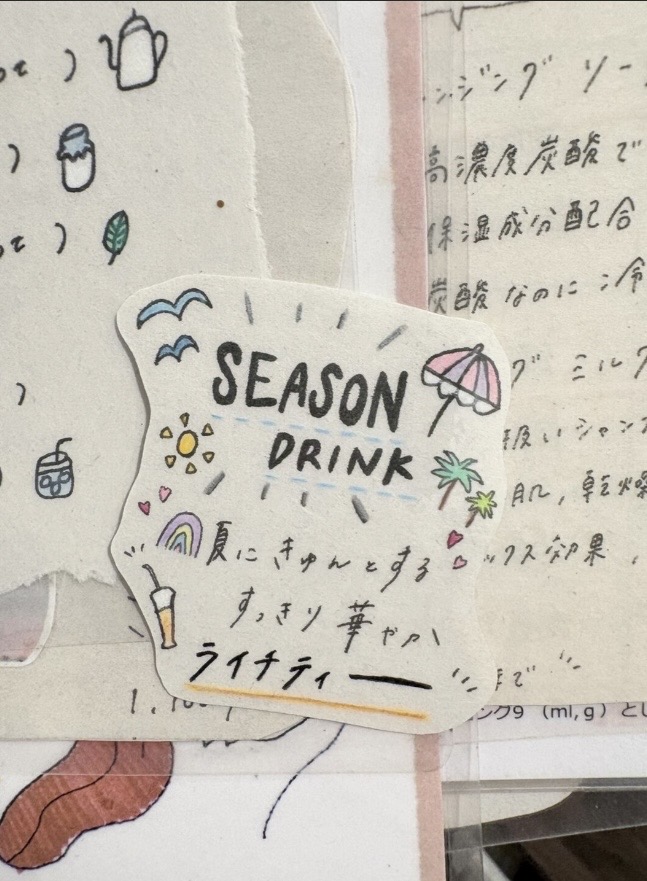 SEASON
DRINK
夏にきゅんとする
すっきり華やか
ライチティー
ジング ソー
高濃度炭酸で
保湿成分配合
炭酸なのに
ミルク
扱いシャン
肌,乾燥
ックス効果,
まで
(ml,g) とし